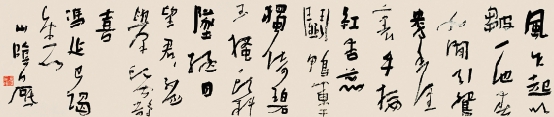 風乍起吹
皺一池春
水閒引鴛
鴦香徑
裏手挼
紅杏蕊
鬪鴨闌干
獨倚碧
玉搔頭斜
墜終日
望君
舉頭聞鵲
喜
馮延巳謁
金門
山陰